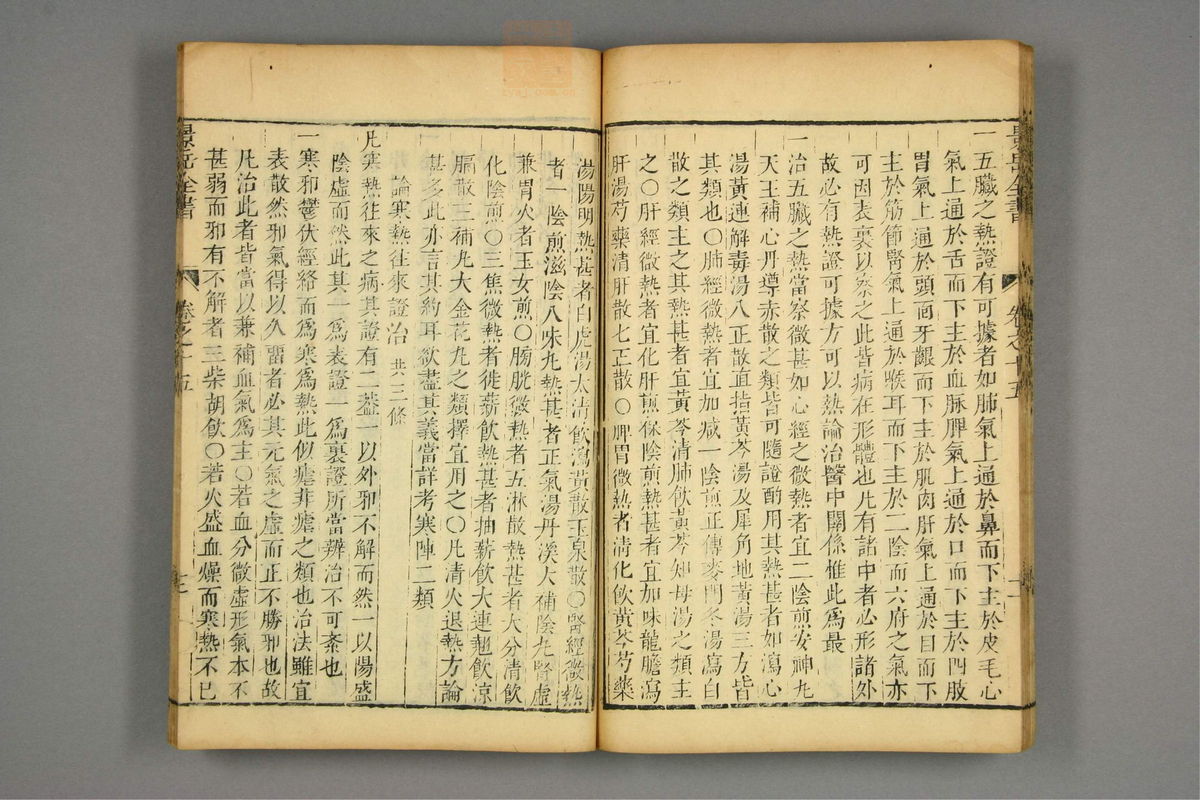 景岳全書
卷之十五
一五臟之熱證有可據者如肺氣上通於鼻而下主於皮毛心
氣上通於舌而下主於血脉脾氣上通於口而下主於四肢
胃氣上通於頭面牙齦而下主於肌肉肝氣上通於目而下
主於筋節腎氣上通於喉耳而下主於二陰而六府之氣亦
可因表裏以察之此皆病在形體也凡有諸中者必形諸外
故必有熱證可據方可以熱論治醫中關係惟此爲最
一治五臟之熱當察微甚如心經之微熱者宜二陰煎安神丸
天王補心丹導赤散之類皆可隨證酌用其熱甚者如瀉心
湯黃連解毒湯八正散直指黃芩湯及犀角地黃湯三方皆
其類也〇肺經微熱者宜加減一陰煎正傳麥門冬湯瀉白
散之類主之其熱甚者宜黃芩清肺飲黃芩知母湯之類主
之〇肝經微熱者宜化肝煎保陰煎熱甚者宜加味龍膽瀉
肝湯芍藥清肝散七正散〇脾胃微熱者清化飲黃芩芍藥
湯陽明熱甚者白虎湯太清飲瀉黃散玉泉散〇腎經微熱
者一陰煎滋陰八味丸熱甚者正氣湯丹溪大補陰丸腎虛
兼胃火者玉女煎〇膀胱微熱者五淋散熱甚者大分清飲
化陰煎〇三焦微熱者徙薪飲熱甚者抽薪飲大連翹飲涼
膈散三補丸大金花丸之類擇宜用之〇凡清火退熱方論
甚多此亦言其約耳欲盡其義當詳考寒陣二類
論寒熱往來證治 共三條
凡寒熱往來之病其證有二葢一以外邪不解而然一以陽盛
陰虛而然此其一爲表證一爲裏證所當辨治不可紊也
一寒邪鬱伏經絡而爲寒爲熱此似瘧非瘧之類也治法雖宜
表散然邪氣得以久畱者必其元氣之虛而正不勝邪也故
凡治此者皆當以兼補血氣爲主〇若血分微虛形氣本不
甚弱而邪有不解者三柴胡飲〇若火盛血燥而寒熱不已
景岳全書
卷之十五